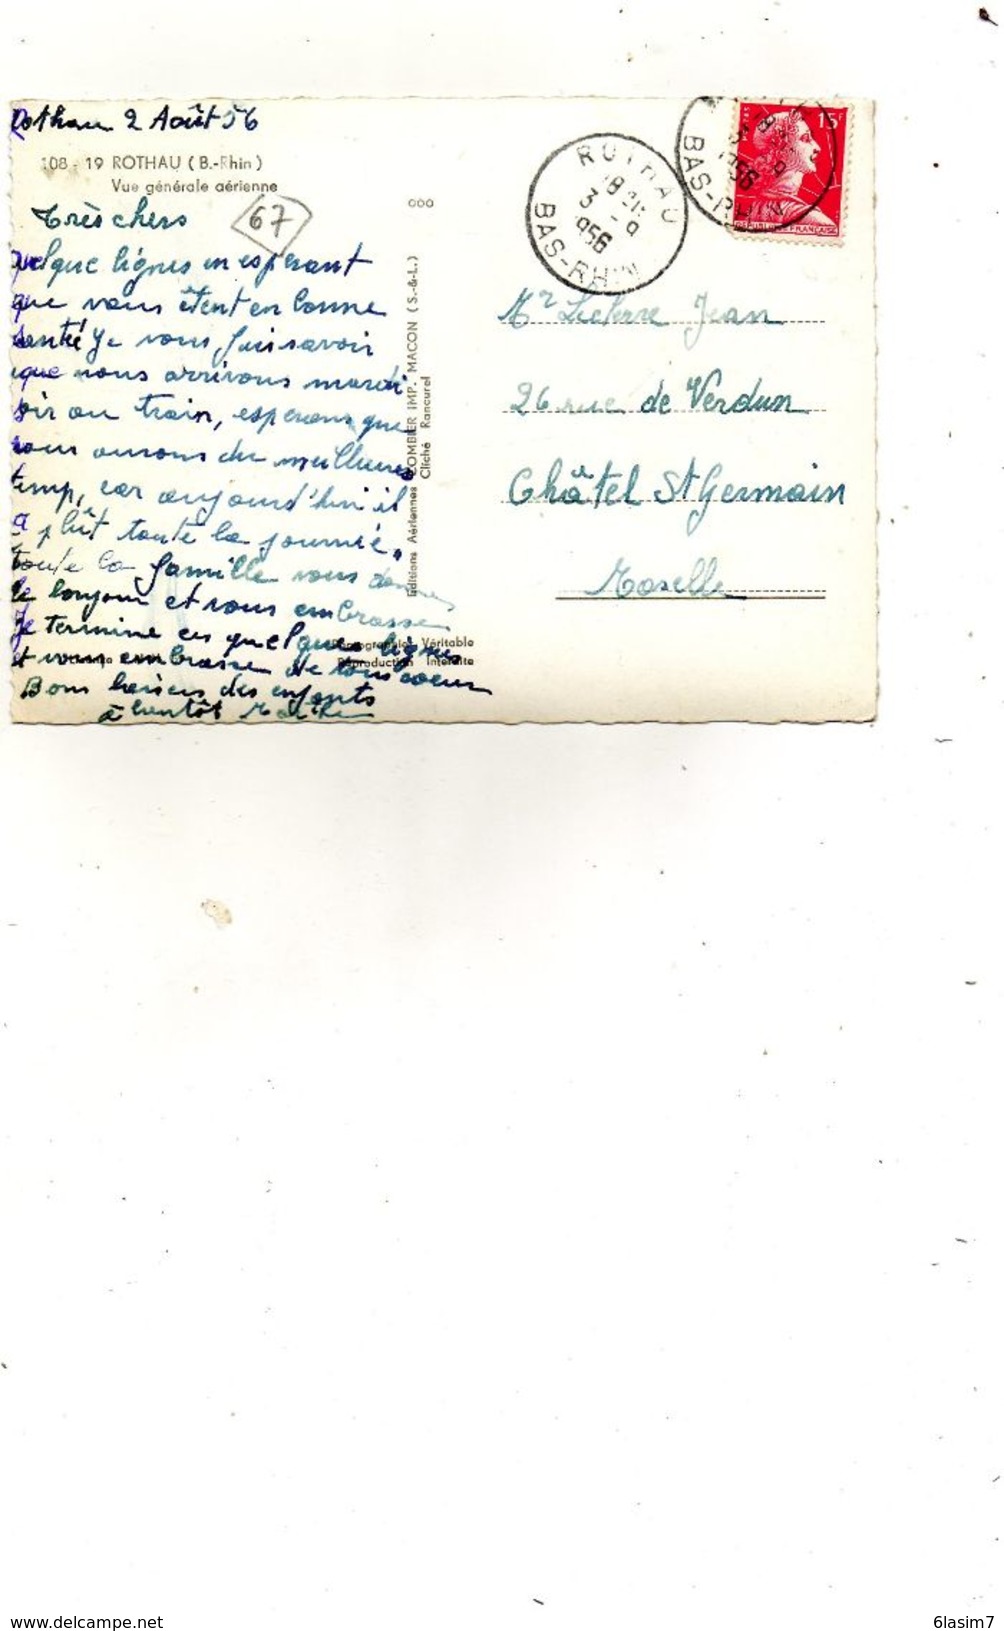 Rothau 2 Août 56
108 - 19 ROTHAU (B.-Rhin)
Vue générale aérienne
67
Très chers
quelque lignes en espérant
que vous êtent en bonne
santé Je vous fais savoir
que nous arrivons mardi
soir au train, esperons que
nous aurons du meilleures
temp, car aujourd'hui il
a plût toute la journée.
Toute la famille vous donnes
le bonjour et vous embrasse
Je termine ces quelque lignes
et vous embrasse de tous coeur
Bons baisers des enfants
à bientôt
Véritable
Reproduction Interdite
ooo
Editions Aériennes COMBIER IMP. MACON (S.-&-L.)
Cliché Rancurel
ROTHAU
18
3 - 9
1956
BAS-RHIN
BAS-RHIN
1956
15F
POSTES
REPUBLIQUE FRANÇAISE
Mr Jean
26 rue de Verdun
Châtel St Germain
Moselle
www.delcampe.net
6lasim7